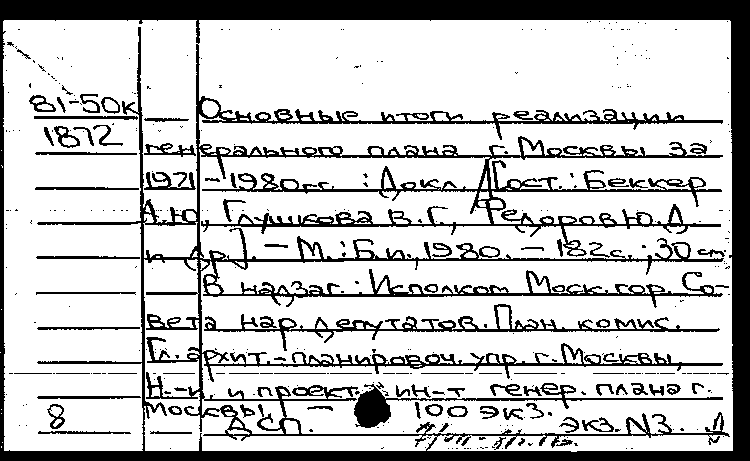 81-50к Основные итоги реализации
1872 генерального плана г. Москвы за
1971-1980гг. : Докл. /[Сост.: Беккер
А.Ю, Глушкова В.Г., Федоров Ю.Д.
и др.]. - М.: Б.и., 1980. - 182с. ; 30 см.
В надзаг.: Исполком Моск. гор. Со-
вета нар. депутатов. План. комис.
Гл. архит.-планировоч. упр. г. Москвы,
Н.-и. и проект. ин-т генер. плана г.
8 Москвы. - 100 экз.
ДСП. экз. N3.